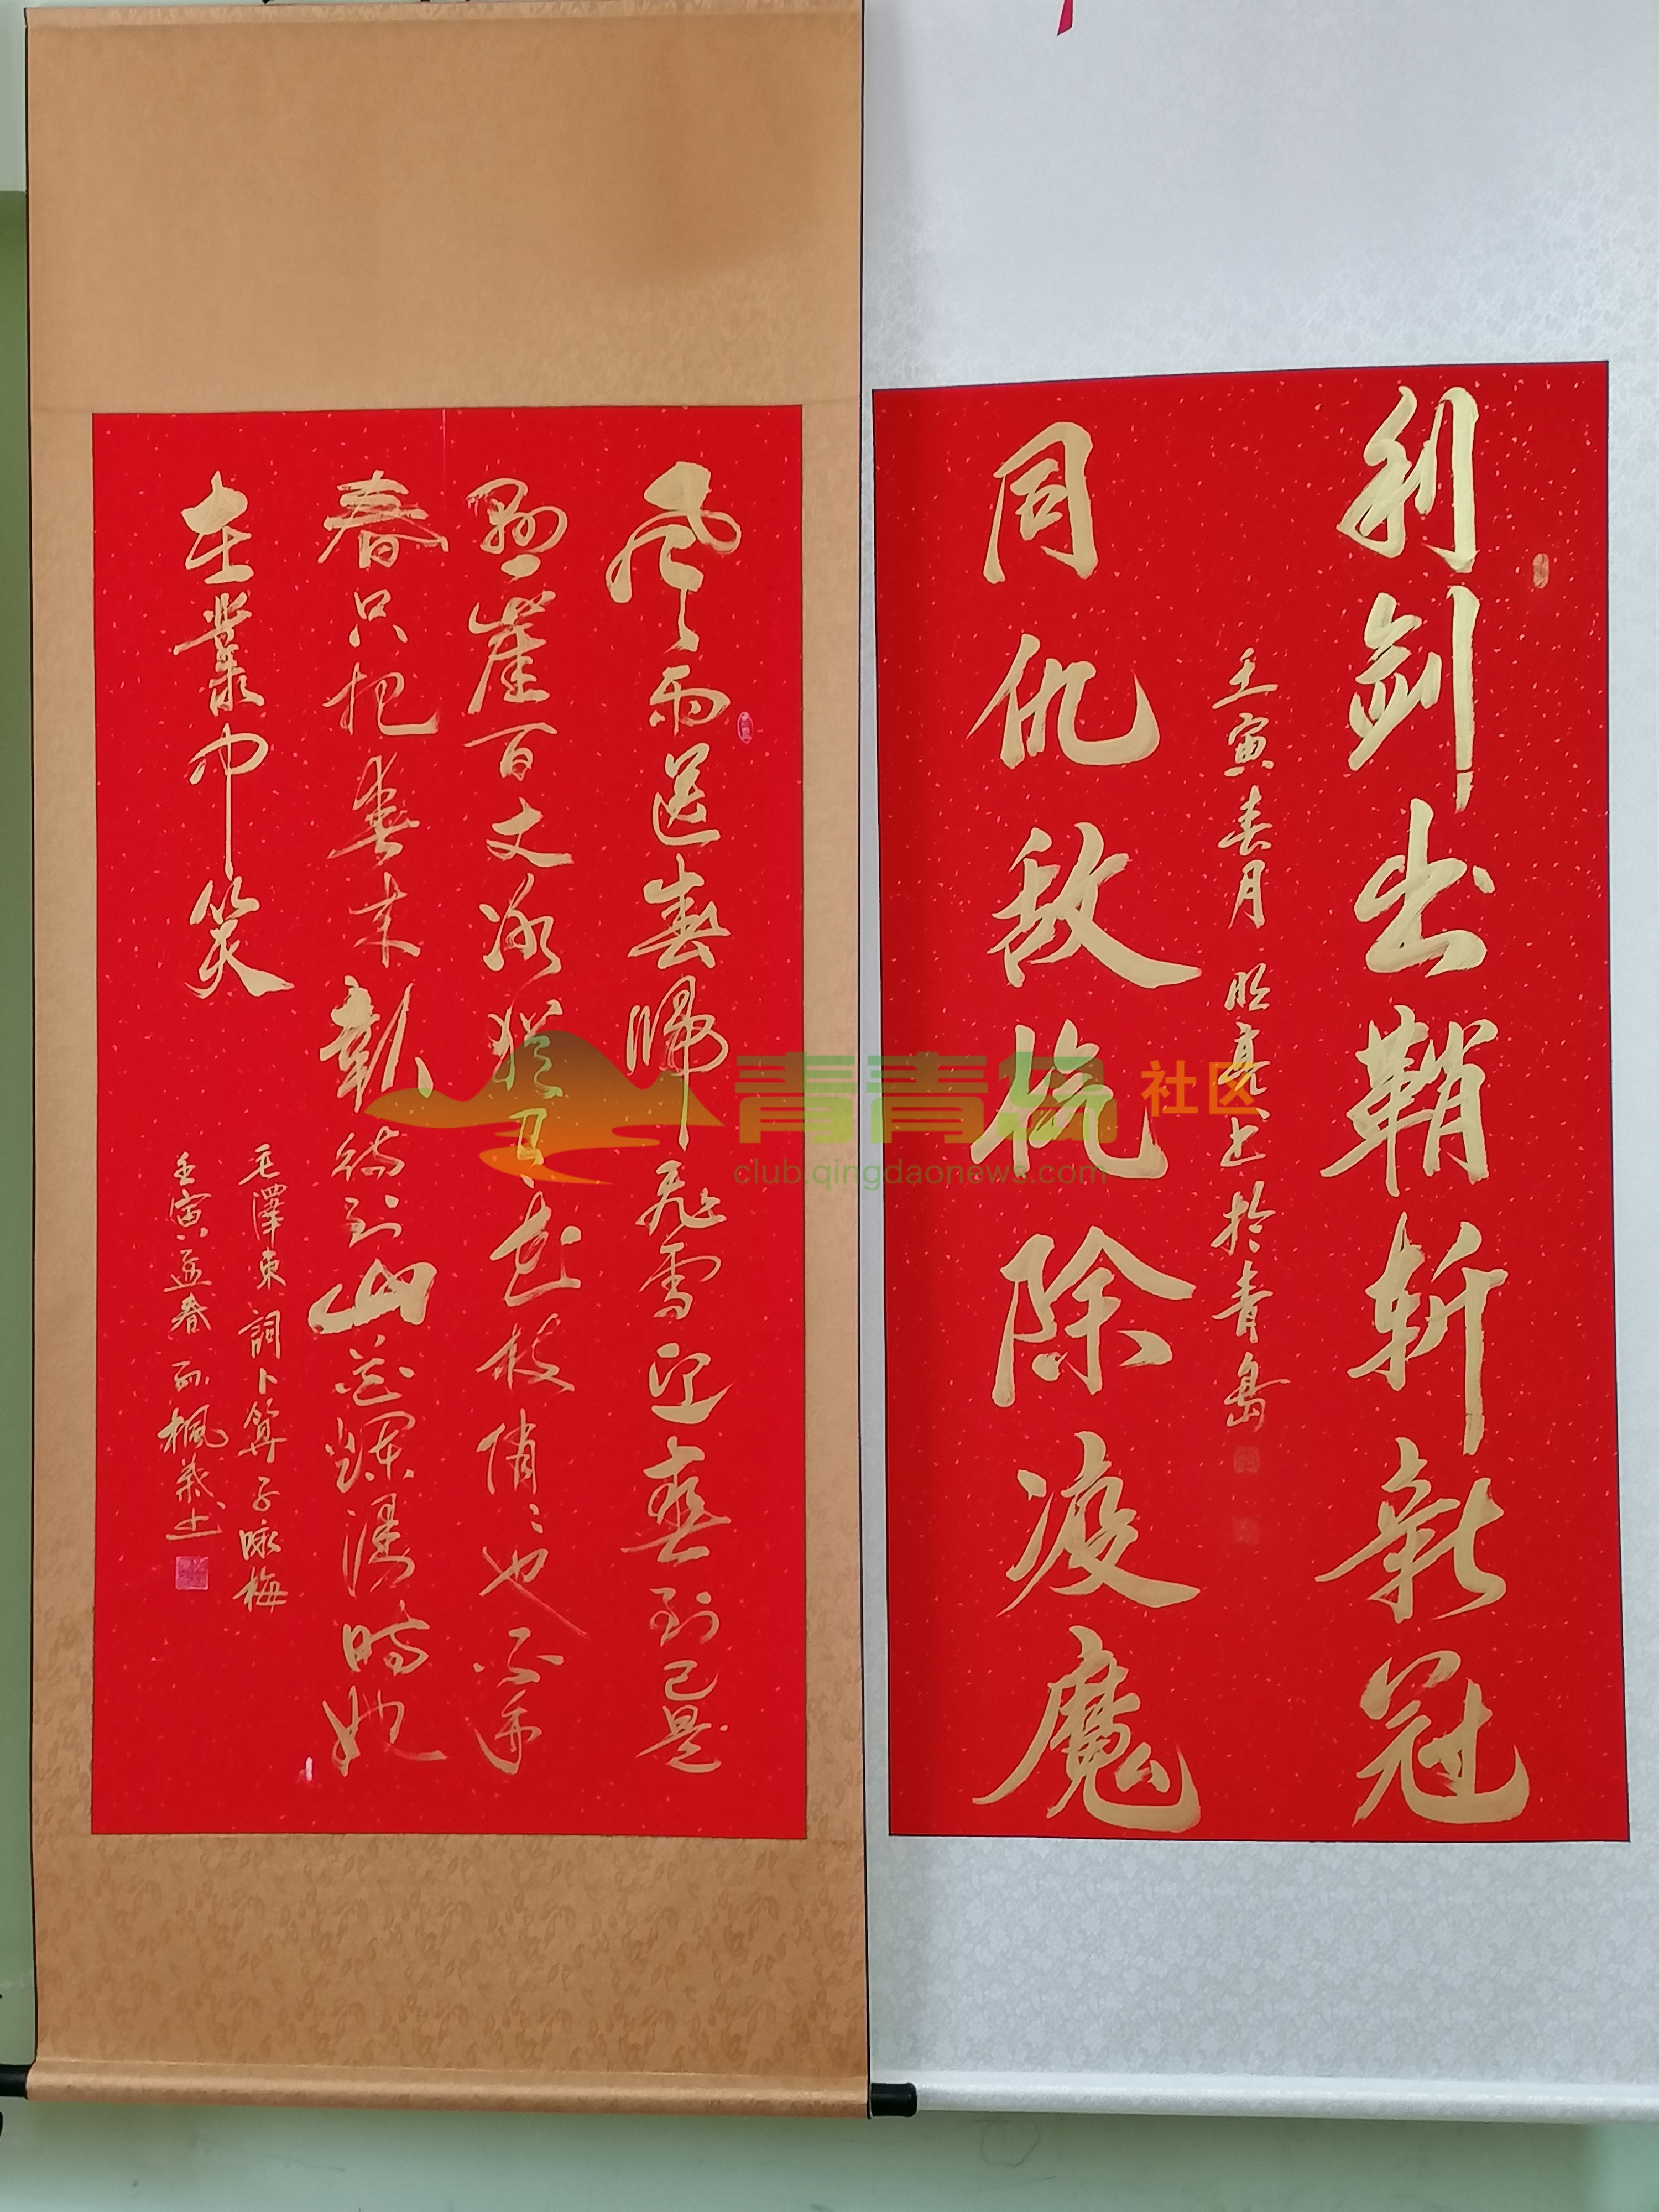 利剑出鞘斩新冠
壬寅春月 明亮上於青島
同仇敌忾除疫魔
風雨送春歸飛雪迎春到已是
懸崖百丈冰猶有花枝俏俏也不争
春只把春来報待到山花爛漫時她
在叢中笑
毛澤東詞卜算子咏梅
壬寅孟春
青青岛 社区
club.qingdaonews.com